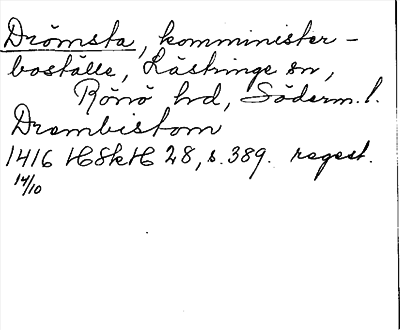 Drömsta, komminister-
boställe, Lästringe sn,
Rönö hd, Söderm. l.
Drembistom
1416 HSkH 28, s. 389. regest.
14/10